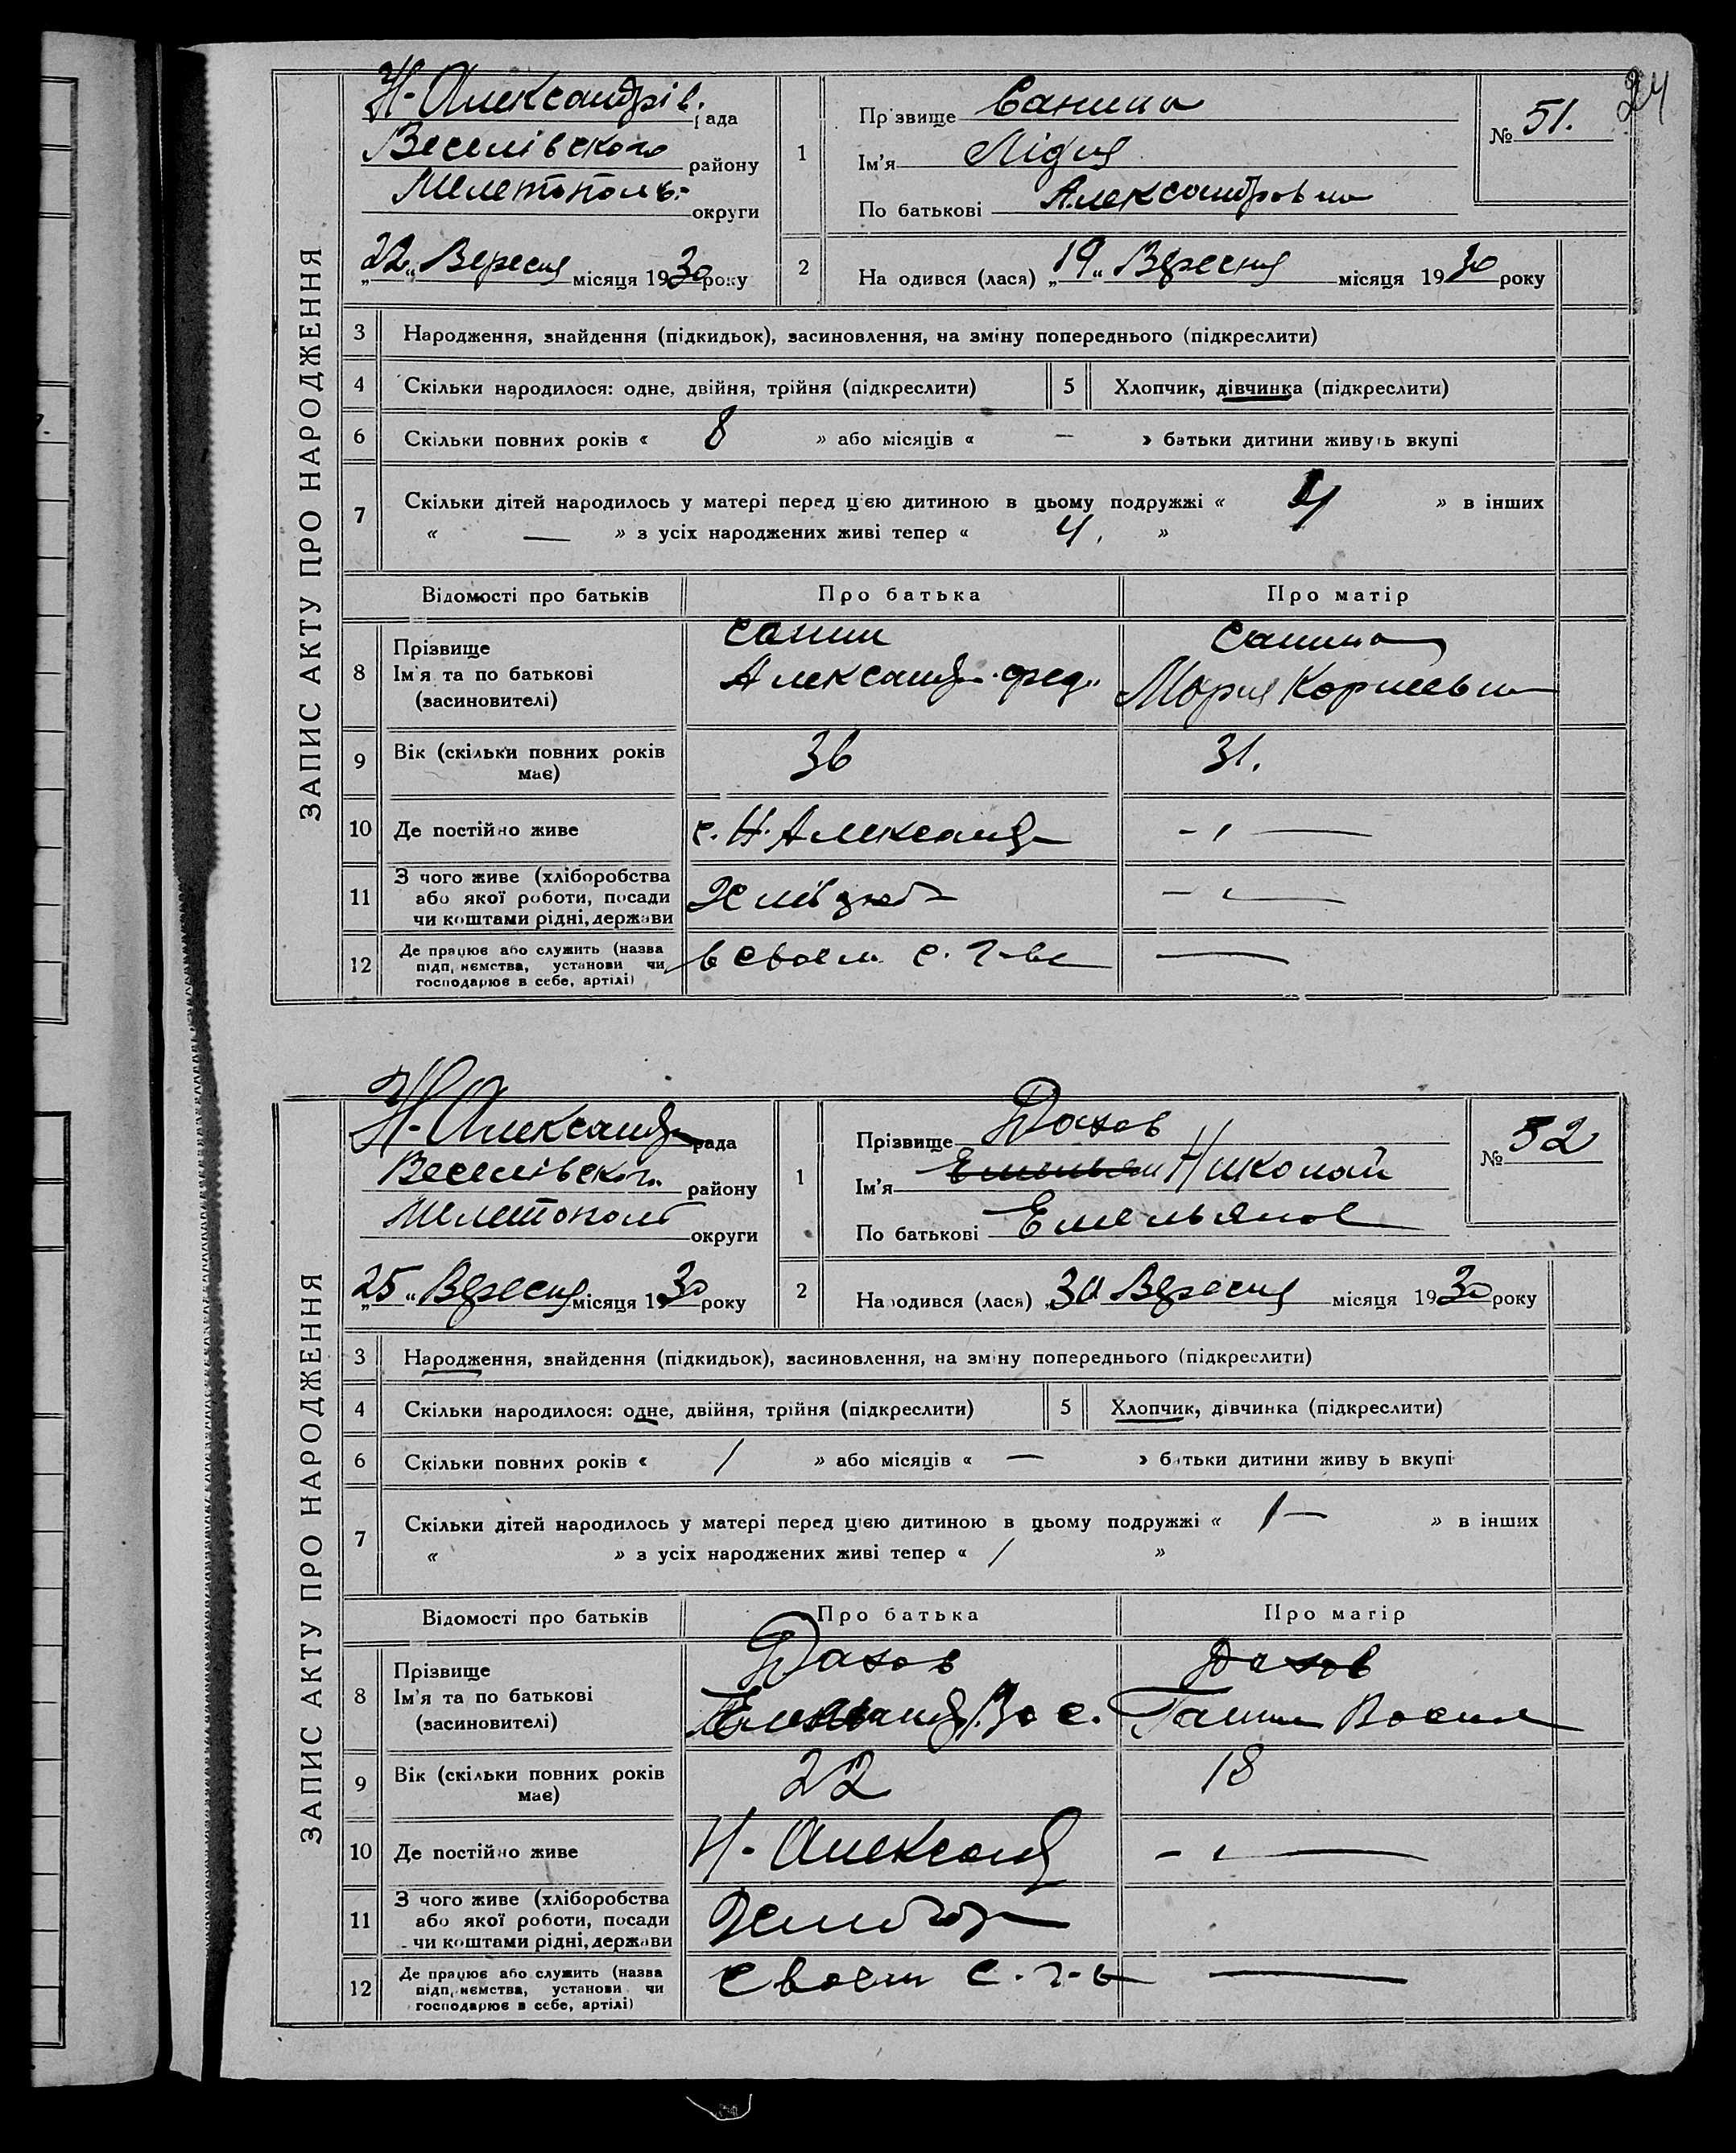 24
ЗАПИС АКТУ ПРО НАРОДЖЕННЯ
Н-Александрів. рада
Веселівского району
Мелетополь- округи
„22„ Вересня місяця 1930 року
1
Прізвище Санина
Ім'я Лідия
По батькові Александровна
№ 51.
2
Народився (лася) „19„ Вересня місяця 1930 року
3 Народження, знайдення (підкидьок), засиновлення, на зміну попереднього (підкреслити)
4 Скільки народилося: одне, двійня, трійня (підкреслити)
5 Хлопчик, дівчинка (підкреслити)
6 Скільки повних років « 8 » або місяців « — » батьки дитини живуть вкупі
7 Скільки дітей народилось у матері перед цією дитиною в цьому подружжі « 4 » в інших
« — » з усіх народжених живі тепер « 4. »
Відомості про батьків Про батька Про матір
8 Прізвище Санин Санина
Ім'я та по батькові Александ. Фед. Мария Корнеевн
(засиновителі)
9 Вік (скільки повних років має) 36 31.
10 Де постійно живе с. Н. Александ — „ —
11 З чого живе (хліборобства
або якої роботи, посади
чи коштами рідні, держави — „ —
12 Де працює або служить (назва
підприємства, установи чи
господарює в себе, артілі) в своем с. г-ве —
ЗАПИС АКТУ ПРО НАРОДЖЕННЯ
Н-Александр рада
Веселівского району
Мелетопол округи
„25„ Вересня місяця 1930 року
1
Прізвище Дахов
Ім'я Емельян Николай
По батькові Емельянов
№ 52
2
Народився (лася) „30 Вересня місяця 1930 року
3 Народження, знайдення (підкидьок), засиновлення, на зміну попереднього (підкреслити)
4 Скільки народилося: одне, двійня, трійня (підкреслити)
5 Хлопчик, дівчинка (підкреслити)
6 Скільки повних років « 1 » або місяців « — » батьки дитини живуть вкупі
7 Скільки дітей народилось у матері перед цією дитиною в цьому подружжі « 1 — » в інших
« » з усіх народжених живі тепер « 1 »
Відомості про батьків Про батька Про матір
8 Прізвище Дахов Дахов
Ім'я та по батькові Вас. Ганна Васил
(засиновителі)
9 Вік (скільки повних років має) 22 18
10 Де постійно живе Н-Александ — „ —
11 З чого живе (хліборобства
або якої роботи, посади
чи коштами рідні, держави
12 Де працює або служить (назва
підприємства, установи чи
господарює в себе, артілі) своем с. г-в —